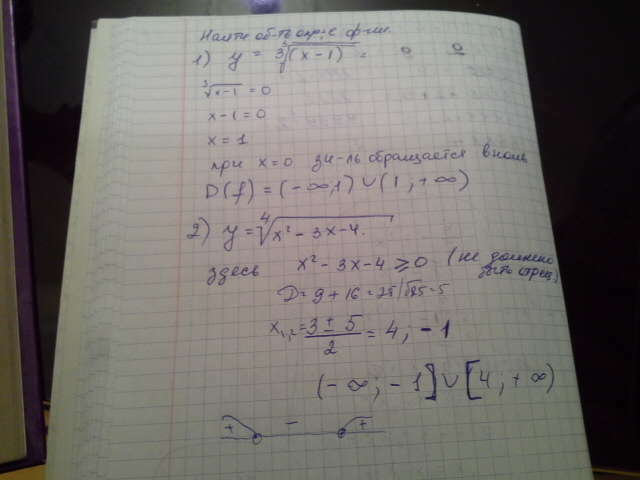 Найти об-ть опр-я ф-ции.
1) y = 3∛(x-1) =
∛x-1 = 0
x-1=0
x = 1
при x=0 зн-ль обращается в ноль
D(f) = (-∞; 1) ∪ (1, +∞)
2) y = ⁴√x² - 3x-4.
здесь x² - 3x - 4 ⩾ 0 (не должно
быть отриц.)
D = 9 + 16 = 25 | √25 = 5
x₁,₂ = 3 ± 5 / 2 = 4; -1
(-∞; -1] ∪ [4; +∞)
+ - +